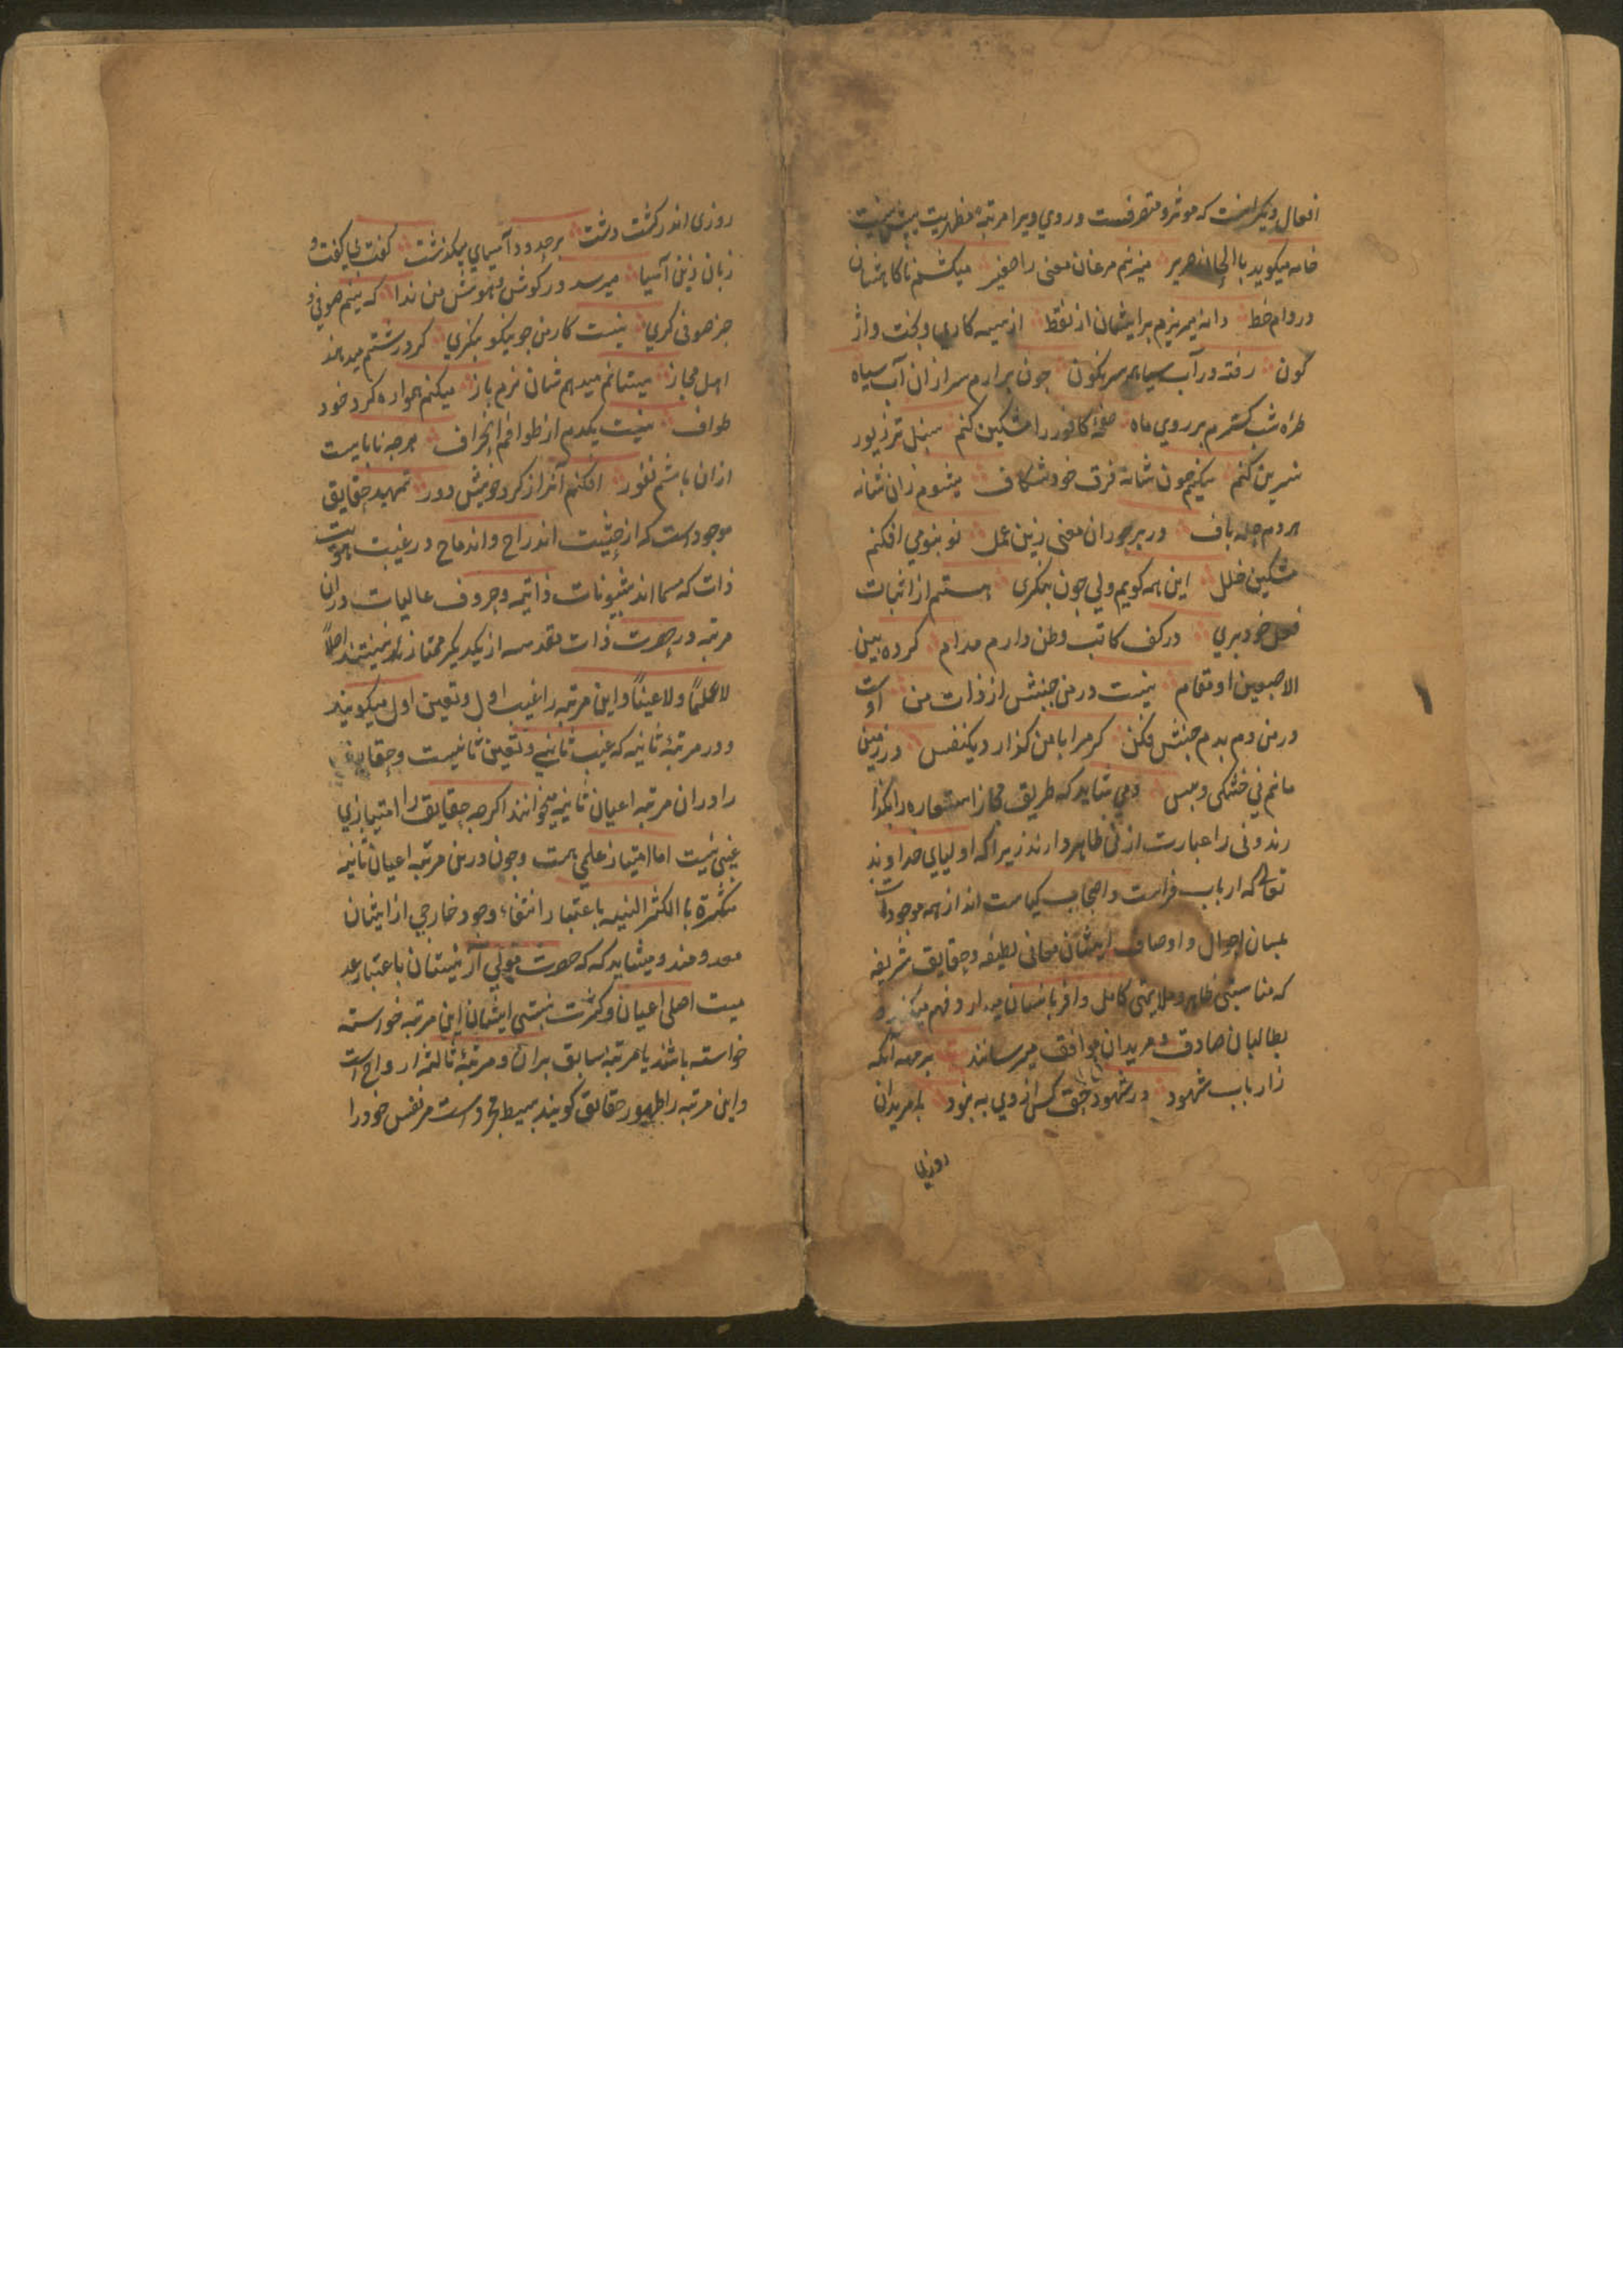 افعال دیکر است که موثر و متصرفست و روی ویرا مرتبهٔ مظهریت بیش نیست
خامه میکوید با الحان صریر میزنم مرغان معنی را صفیر میکشم ناکاه شان
در دام خط دانه میریزم برایشان از نقط از سیه کاری و بخت واژ
کون رفته در آب سیاهم سرنکون چون برارم سر ازان آب سیاه
طره شب کسترم بر روی ماه صفحهٔ کافور را مشکین کنم سنبل تر زیور
نسرین کنم میکنم چون شانه فرق خود شکاف میشوم زان شانه
هر دم حله باف در بر حوران معنی زین عمل نو بنو می افکنم
مشکین حلل این همه کویم ولی چون بنکری هستم از اثبات
فعل خود بری در کف کاتب وطن دارم مدام کرده بین
الاصبعین او مقام نیست در من جنبش از ذات من اوست
در من دم بدم جنبش فکن کر مرا با من کذارد یکنفس در زمین
مانم نی خشکی و بس و می شاید که طریق مجاز استعاره را بکذا
رند و نی را عبارت از نی ظاهر دارند زیرا که اولیای خداوند
تعالی که ارباب فراست و اصحاب کیاست اند از همه موجودات
بلسان احوال و اوصاف ایشان معانی لطیفه و حقایق شریفه
که مناسبتی ظاهر و ملایمتی کامل وافر باشان میدارد فهم میکنند و
بطالبان صادق و مریدان موافق میرسانند بر مهنه آنکه
ز ارباب شهود در شهود حق کس از وی به نبود با مریدان
روزی
روزی اندر کشت دشت بر حدود آسیای میکذشت کفت می کفت و
زبان زین آسیا میرسد در کوش هوش من ندا که بینم صوفی و
جز صوفی کری نیست کار من چو نیکو بنکری کر درشتم میدهند
اهل مجاز میستانم میدهم شان نرم باز میکنم همواره کرد خود
طواف نیست یکدم از طوافم انحراف هر چه نابایست
ازان باشم نفور افکنم آنرا ز کرد خویش دور تمهید حقایق
موجودست که از حیثیت اندراج و اندماج در غیبت هویت
ذات که مسما اند بشیونات ذاتیه و حروف عالیات دران
مرتبه در حضرت ذات مقدسه از یکدیکر ممتاز نیستند اصلاً
لا علماً و لا عیناً و این مرتبه را غیب اول و تعین اول میکویند
و در مرتبهٔ ثانیه که غیب ثانی و تعین ثانیست و حقایق
را دران مرتبه اعیان ثابته میخوانند اکرچه حقایق را امتیازی
عینی نیست اما امتیاز علمی هست و چون درین مرتبه اعیان ثابته
متکثره با الکثر النسبیه باعتبار انتفاء وجود خارجی از ایشان
معدومند و میشاید که حضرت مولی از نیستان باعتبار عد
میت اصلی اعیان و کثرت نسبتی ایشان این مرتبه خواسته
خواسته باشند یا مرتبه سابق بران و مرتبهٔ ثالثه ارواح است
و این مرتبه را ظهور حقایق کویند بسیط مجردست مر نفس خود را